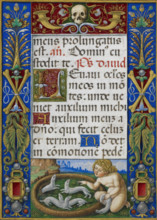 meus prolongatus
est. an̄. Domin' cu
stodit te. Ps. dauid
Leuaui oclos
meos in mō
tes: unde ue
niet auxilium michi
Auxilium meum a
dn̄o: qui fecit celuz
et terram. Nō det
in comotionē pede